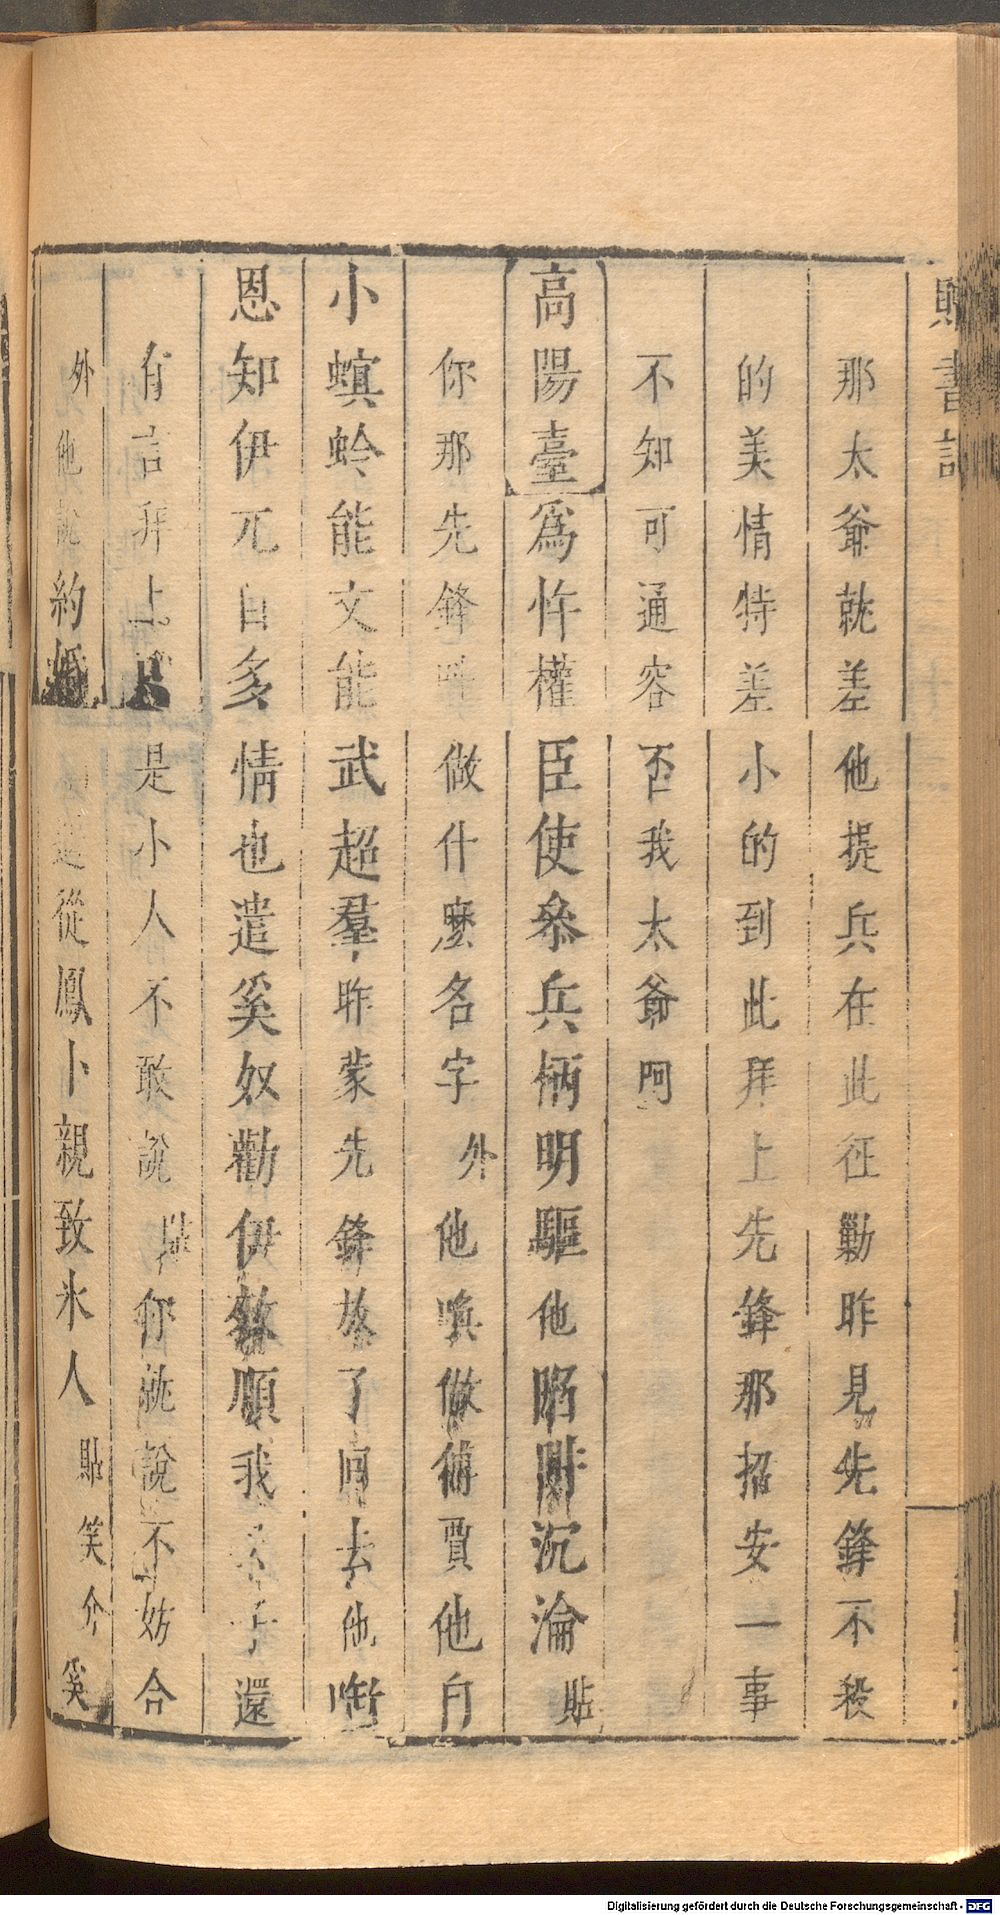 書記
那太爺就差他提兵在此征勦昨見先鋒不殺
的美情特差小的到此拜上先鋒那招安一事
不知可通容否我太爺阿
高陽臺爲忤權臣使叅兵柄明驅他陷阱沉淪貼
你那先鋒叫做什麽名字外他喚做傅賈他自
小螟蛉能文能武超羣昨蒙先鋒放了回去他啣
恩知伊元自多情也遣奚奴勸伊效順我還
有言拜上是小人不敢說貼你就說不妨合
外他說約婚從鳳卜親致氷人貼笑介奚
Digitalisierung gefördert durch die Deutsche Forschungsgemeinschaft - DFG